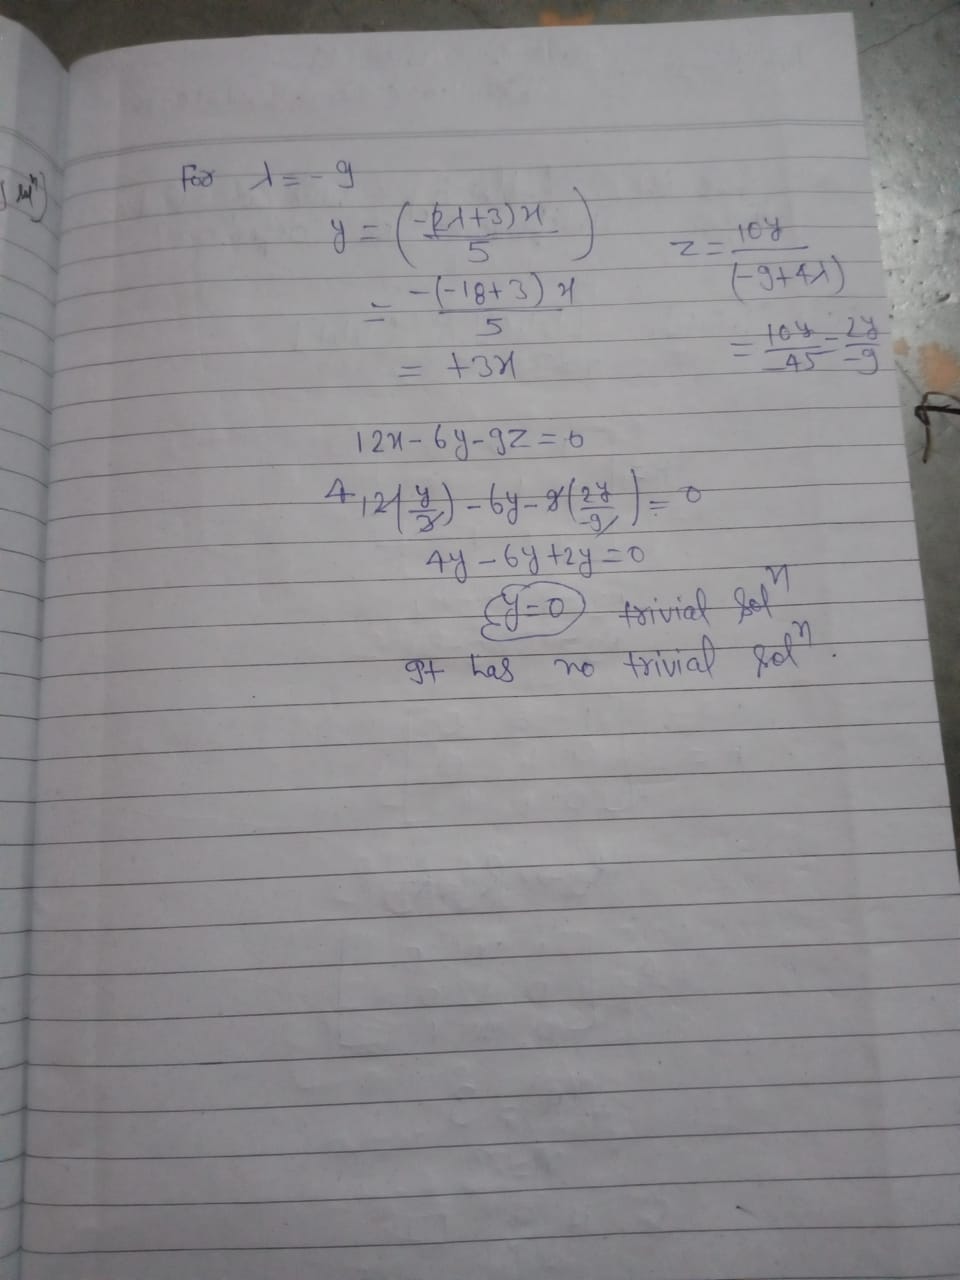 solⁿ)
For λ = - 9
y = (-(2λ+3)x / 5)
= -(-18+3) x / 5
= +3x
z = 10y / (-9+4λ)
= 10y / -45 = 2y / -9
12x - 6y - 9z = 0
4 12(y/3) - 6y - 9(2y/-9) = 0
4y - 6y + 2y = 0
y = 0 trivial solⁿ
It has no trivial solⁿ.